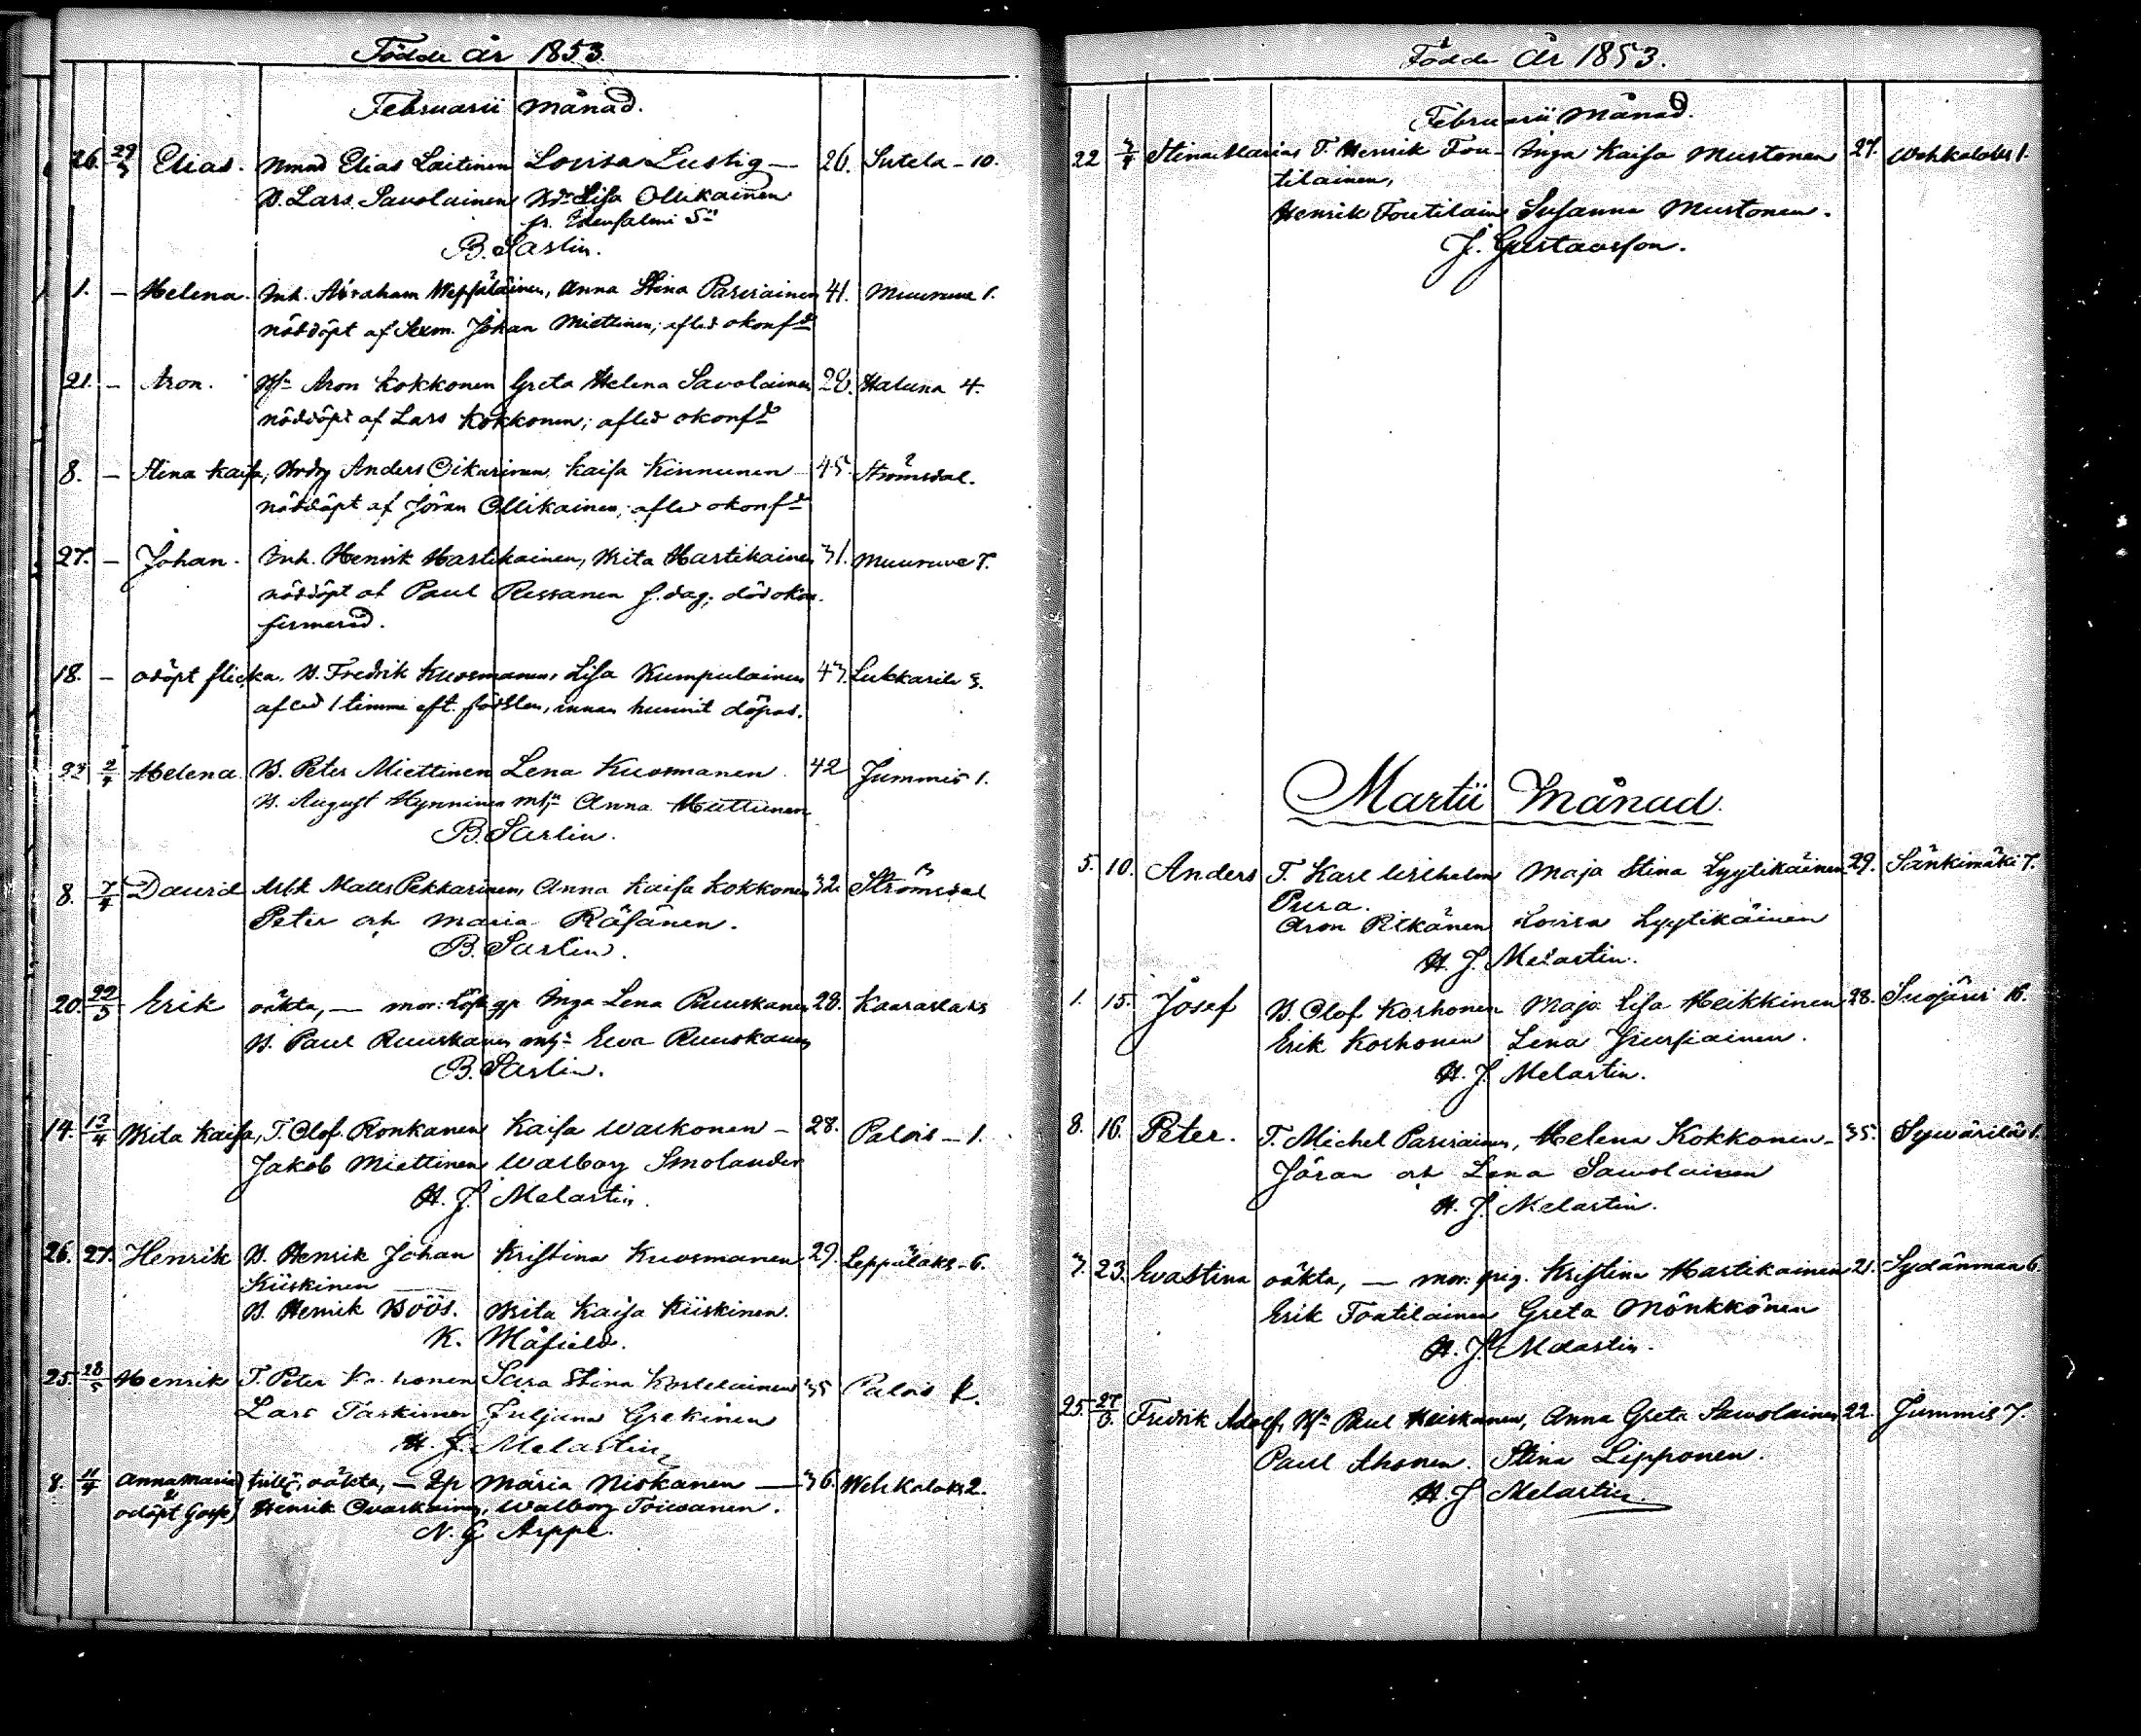 Födde år 1853.
Februarii månad.
26. 29/3 Elias. Nmnd Elias Laitinen Lovisa Lustig — 26. Sutela - 10.
B. Lars Savolainen Lisa Ollikainen
fr. Idensalmi
B. Sarlin.
1. — Helena. Inh. Abraham Anna Stina Parviainen 41. Muuruve 1.
nöddöpt af Sexm. Johan Miettinen; afled okonf
21. — Aron. Aron Kokkonen Greta Helena Savolainen 28. Haluna 4.
nöddöpt af Lars Kokkonen; afled okonf
8. — Stina Kaisa, Anders Oikarinen, Kaisa Kinnunen 45. Strömsdal.
nöddöpt af Jöran Ollikainen; afled okonf
27. — Johan. Inh. Henrik Hartikainen, Brita Hartikainen 31. Muuruve 7.
nöddöpt af Paul Ressanen f. dag; död okon-
firmerad.
18. — odöpt flicka. B. Fredrik Kuosmanen, Lisa Kumpulainen 43. Lukkarila 3.
afled 1 timme eft. födslen, innan hunnit döpas.
23 2/4 Helena B. Peter Miettinen Lena Kuosmanen. 42 Jummis 1.
B. August Hynninen Anna
B. Sarlin.
8. 7/4 David Arbk Matts Pekkarinen, Anna Kaisa Kokkonen 32. Strömsdal
Peter och Maria Räsänen.
B. Sarlin.
20. 22/5 Erik oäkta, — mor: Inga Lena Ruuskanen 28. Kaaraslaks
B. Paul Ruuskanen Eva Ruuskanen
B. Sarlin.
14. 13/4 Brita Kaisa, T. Olof Ronkanen Kaisa Warkonen — 28. Palois - 1.
Jakob Miettinen Walborg Smolander
H. J. Melartin.
26. 27. Henrik B. Henrik Johan Kristina Kuosmanen 29. Leppälaks - 6.
Kiiskinen
B. Henrik Böös. Brita Kaisa Kiiskinen.
K.
25. 28/5 Henrik T. Peter Sara Stina 35 Palois
Lars Juljana
H. J. Melartin
8. 11/4 Anna Maria oäkta, — Maria Niskanen — 36. Wehkalaks 2.
odöpt Henrik Walborg Toivanen.
N. G. Arppe.
Födde År 1853.
Februarii månad.
22 3/4 Stina Maria T. Henrik Tou- Inga Kaisa Mustonen 27. Wehkalaks 1.
tilainen,
Henrik Toutilain Susanna Mustonen.
J. Gustavsson.
Martii månad.
5. 10. Anders T. Karl Wilhelm Maja Stina Lyytikäinen 29. Sänkimäki 7.
Pura.
Aron Pitkänen Lovisa Lyytikäinen
H. J. Melartin.
1. 15. Josef B. Olof Korhonen Maja Lisa Heikkinen 28. Suojärvi 16.
Erik Korhonen Lena
H. J. Melartin.
8. 16. Peter. T. Michel Parviainen, Helena Kokkonen - 35. Sywärilä 1.
Jöran och Lena Savolainen
H. J. Melartin.
3. 23. Eva Stina oäkta, — mor: pig. Kristina Hartikainen 21. Sydänmaa 6.
Erik Toutilainen Greta Mönkkönen
H. J. Melartin.
25. 27/3. Fredrik Adolf, Paul Heiskanen, Anna Greta Savolainen 22. Jummis 7.
Paul Ahonen. Stina Lipponen.
H. J. Melartin.